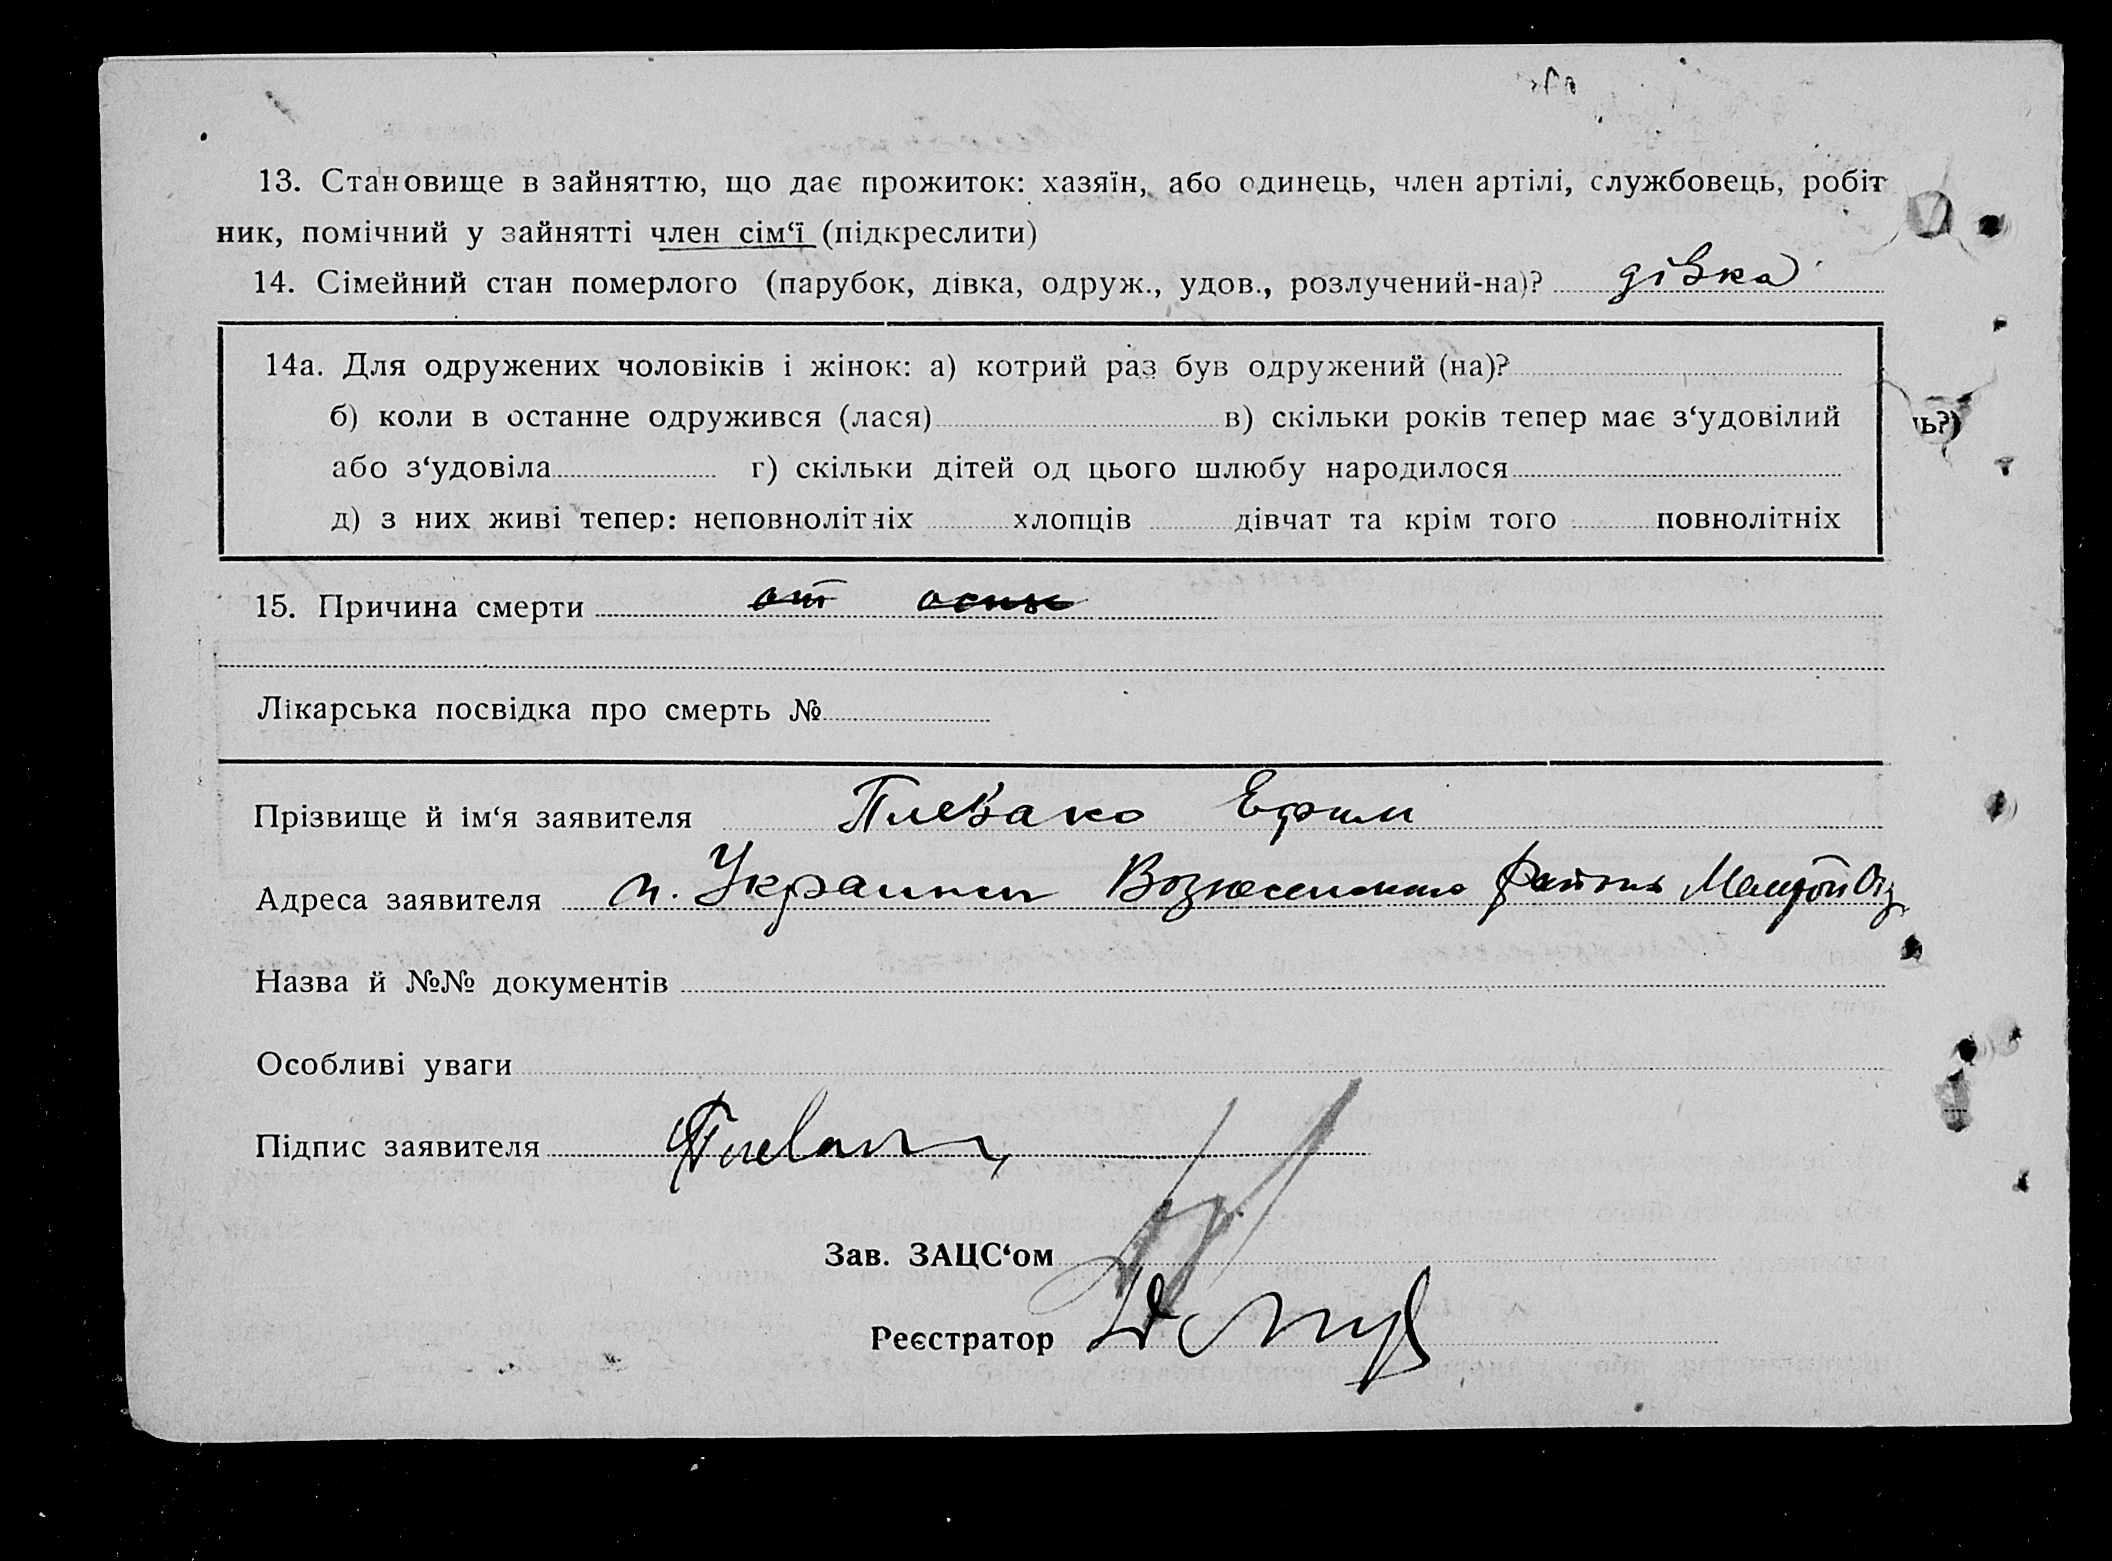 13. Становище в зайняттю, що дає прожиток: хазяїн, або одинець, член артілі, службовець, робіт
ник, помічний у зайнятті член сім‘ї (підкреслити)
14. Сімейний стан померлого (парубок, дівка, одруж., удов., розлучений-на)? дівка
14а. Для одружених чоловіків і жінок: а) котрий раз був одружений (на)?
б) коли в останне одружився (лася) в) скільки років тепер має з‘удовілий
ь?)
або з‘удовіла г) скільки дітей од цього шлюбу народилося
д) з них живі тепер: неповнолітніх хлопців дівчат та крім того повнолітніх
15. Причина смерти от оспы
Лікарська посвідка про смерть №
Прізвище й ім‘я заявителя Плевако Ефим
Адреса заявителя п. Украинки Вознесенского района
Назва й №№ документів
Особливі уваги
Підпис заявителя
Зав. ЗАЦС‘ом
Реєстратор